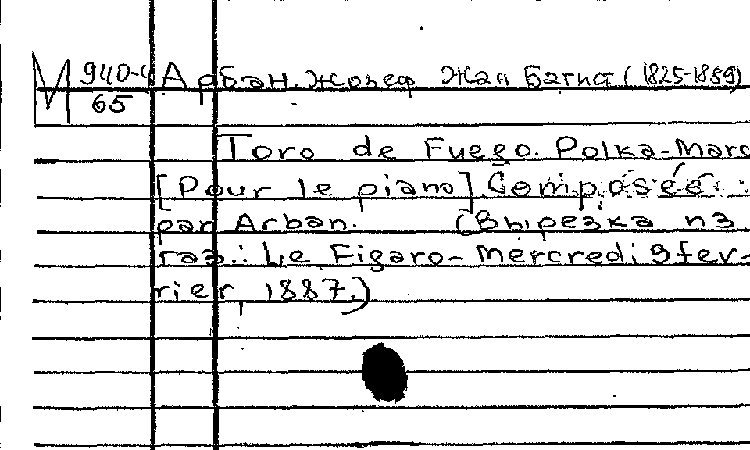 М 940-4 Арбан. Жозеф Жан Батист (1825-1889)
65
Toro de Fuego. Polka-Marc
[Pour le piano] Composée
par Arban. (Вырезка из
газ.: Le Figaro- Mercredi 9 fev-
rier, 1887.)